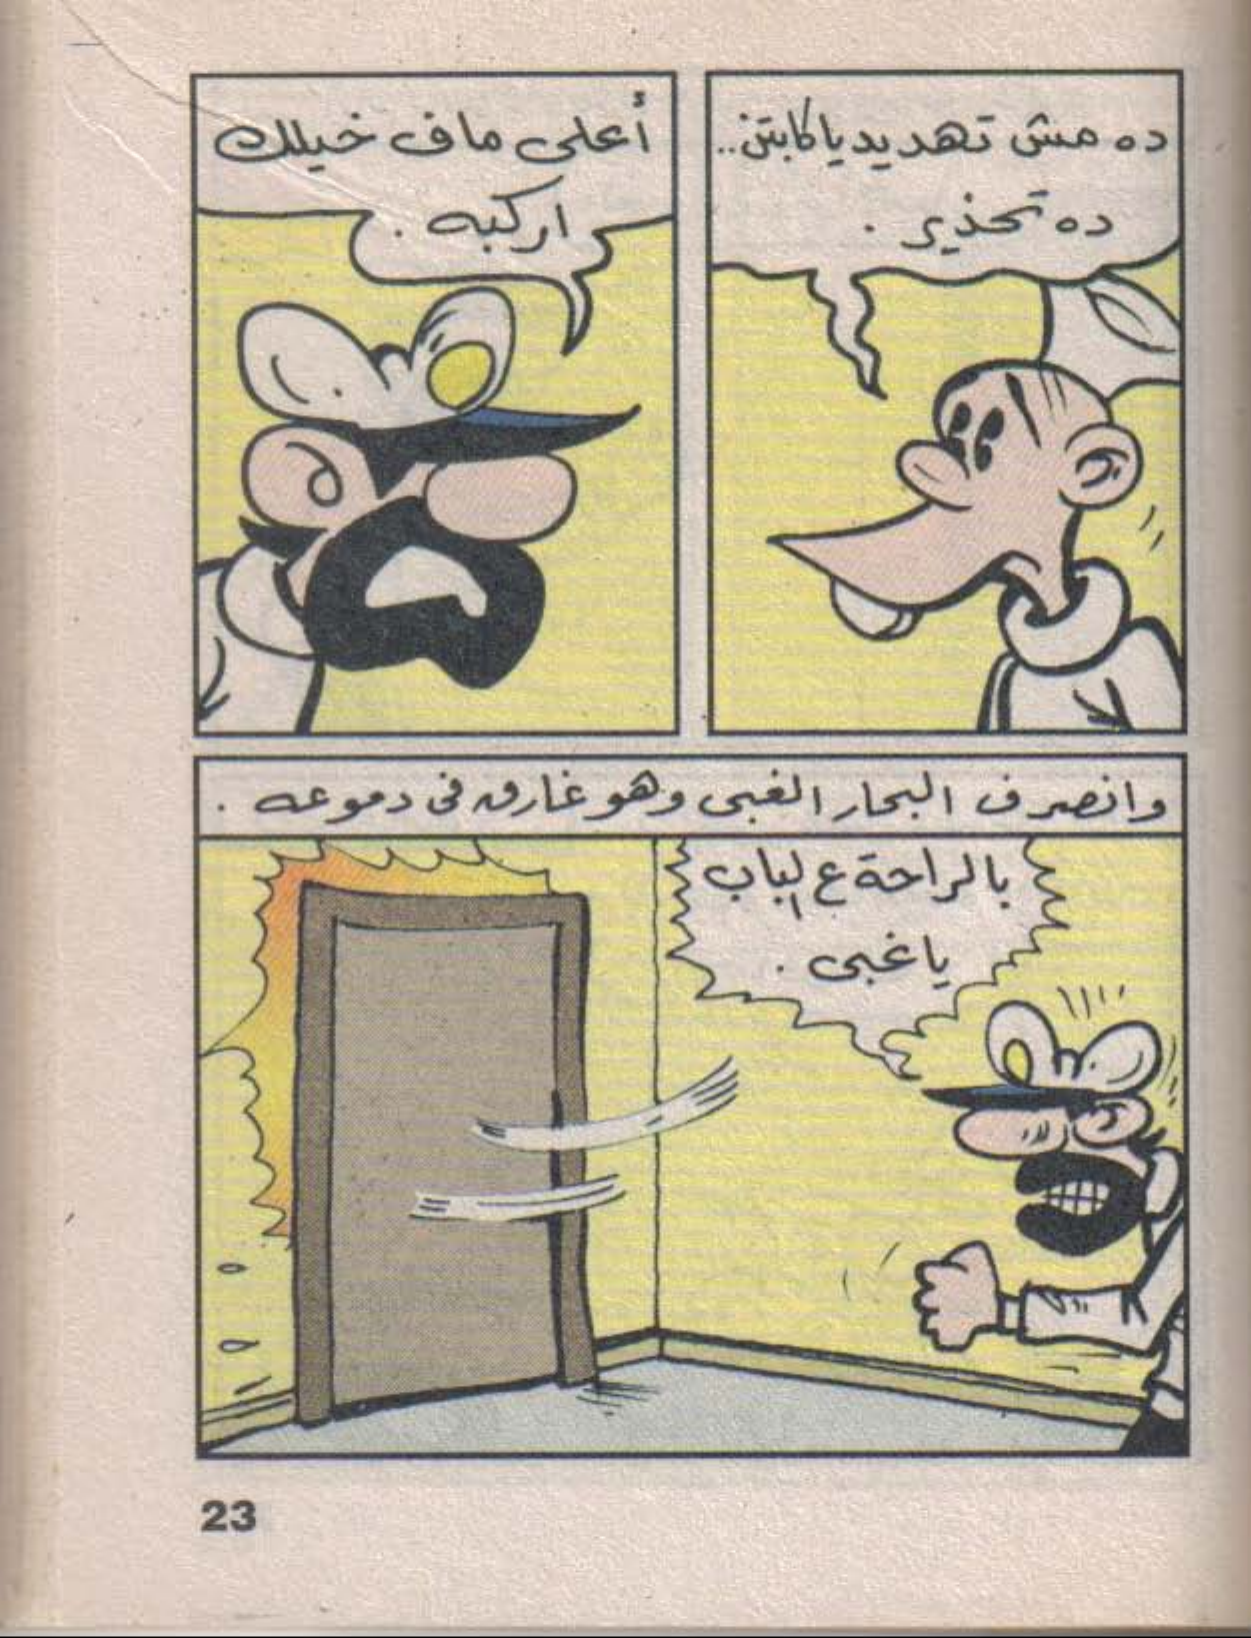 ده مش تهديد يا كابتن..
ده تحذير .
أعلى ماف خيلك
اركبه .
وانصرف البحار الغبى وهو غارق فى دموعه .
بالراحة ع الباب
يا غبى .
23